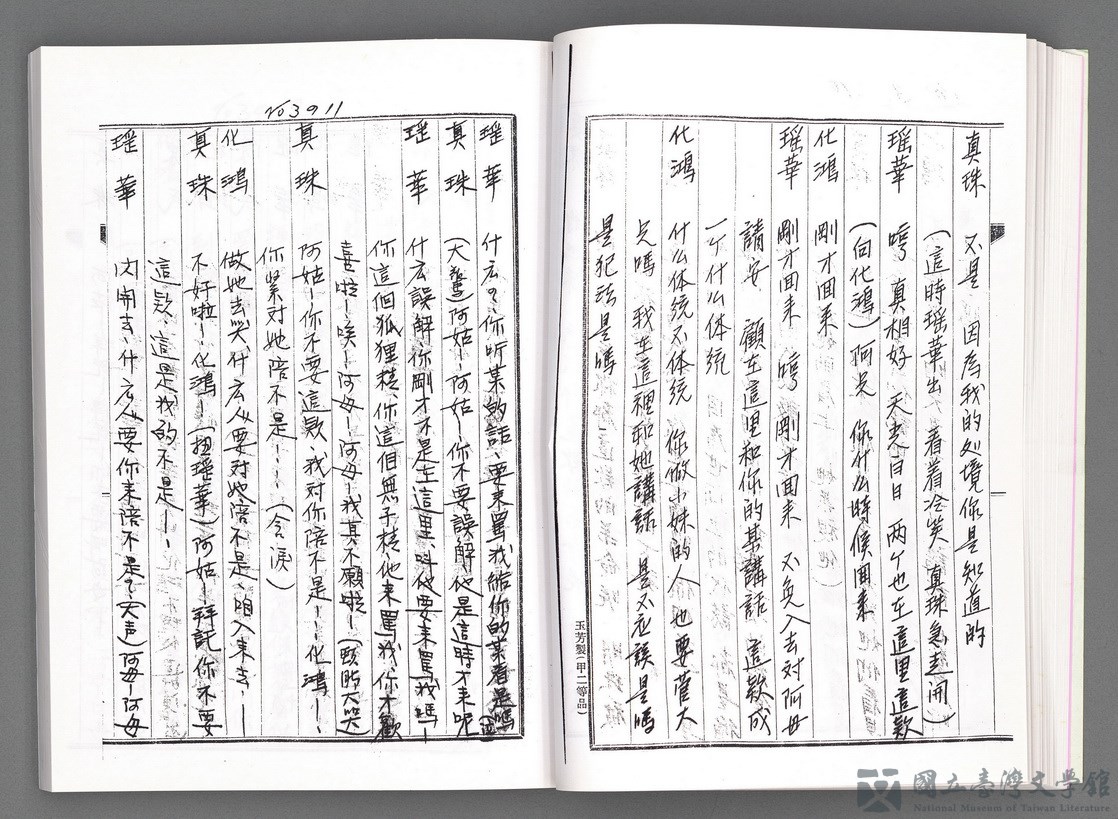 真珠 不是 因為我的处境你是知道的
(這時瑶華出 看着冷笑 真珠急走開)
瑶華 哼 真相好 天光白日 两个也在這里這款
(向化鴻)阿兄 你什么時候回来
化鴻 剛才回来
瑶華 剛才回来 哼 剛才回来 不免入去对阿母
請安 顧在這里和你的某講話 這款成
一个什么体统
化鴻 什么体统不体统 你做小妹的人 也要管大
兄嗎 我在這裡和她講話 是不应該是嗎
是犯法是嗎
玉芳製(甲·二等品)
No3911
瑶華 什么?你听某的話、要来罵我給你的某看是嗎
真珠 (大驚)阿姑—阿姑—你不要誤解他是這時才来呢
瑶華 什么誤解、你剛才才是在這里、叫他要来罵我嗎—
你這個狐狸精、你這個無子精、他来罵我、你才歡
喜啦—唉—阿母—阿母—我真不願啦—(大哭
真珠 阿姑—你不要這款、我对你陪不是———化鴻—
你緊对她陪不是———(含淚)
化鴻 做她去哭什么人要对她陪不是、咱入来去——
真珠 不好啦—化鴻—(瑶華)阿姑—拜託你不要
這款、這是我的不是——
瑶華 闪開去、什么人要你来陪不是?(大声)阿母—阿母
國立臺灣文學館
National Museum of Taiwan Literature